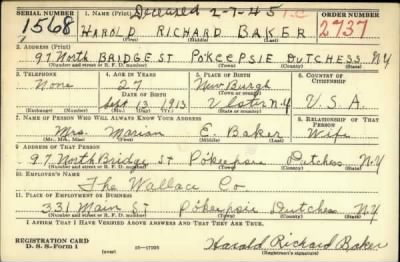 Deceased 2-7-45
SERIAL NUMBER 1. NAME (Print) ORDER NUMBER
1568 HAROLD RICHARD BAKER 2737
(First) (Middle) (Last)
2. ADDRESS (Print)
97 North BRIDGE ST POKEEPSIE DUTCHESS N.Y
(Number and street or R. F. D. number) (Town) (County) (State)
3. TELEPHONE 4. AGE IN YEARS 5. PLACE OF BIRTH 6. COUNTRY OF CITIZENSHIP
None 27 New Burgh
DATE OF BIRTH (Town or county)
Sept 13 1913 Ulster N.Y U.S.A.
(Exchange) (Number) (Mo.) (Day) (Yr.) (State or country)
7. NAME OF PERSON WHO WILL ALWAYS KNOW YOUR ADDRESS 8. RELATIONSHIP OF THAT PERSON
Mrs. Marian E. Baker Wife
(Mr., Mrs., Miss) (First) (Middle) (Last)
9. ADDRESS OF THAT PERSON
97 North Bridge ST Pokeepsie Dutchess N.Y
(Number and street or R. F. D. number) (Town) (County) (State)
10. EMPLOYER'S NAME
The Wallace Co
11. PLACE OF EMPLOYMENT OR BUSINESS
331 Main ST Pokeepsie Dutchess N.Y
(Number and street or R. F. D. number) (Town) (County) (State)
I AFFIRM THAT I HAVE VERIFIED ABOVE ANSWERS AND THAT THEY ARE TRUE.
REGISTRATION CARD
D. S. S. Form 1 (over) Harold Richard Baker
(Registrant's signature)